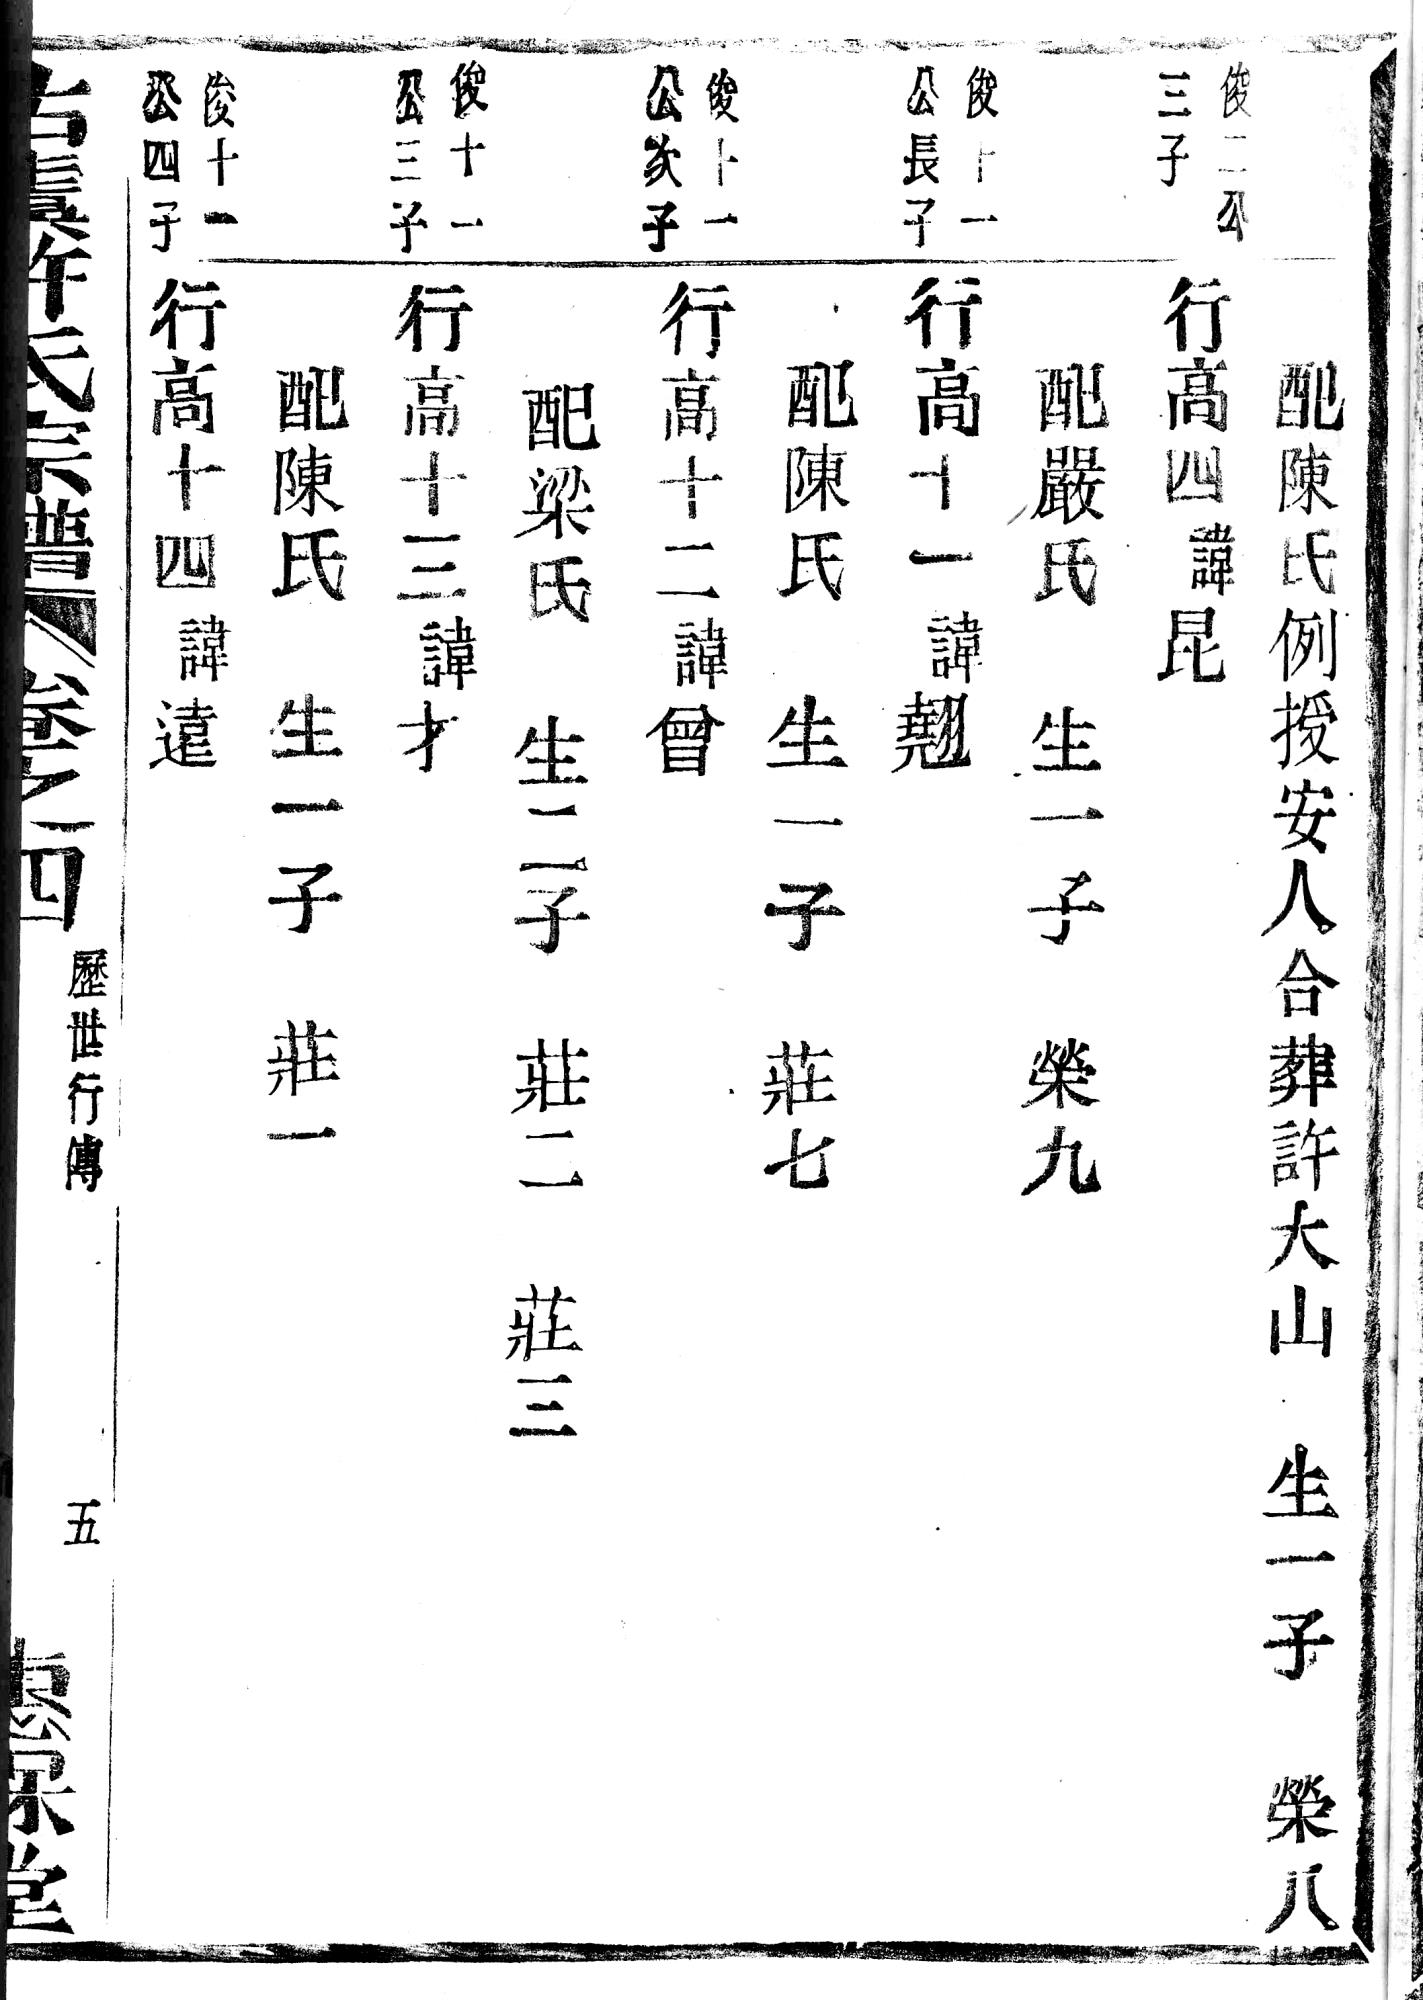 配陳氏例授安人合葬許大山 生一子 榮八
俊二公
三子
行高四諱昆
配嚴氏 生一子 榮九
俊十一
公長子
行高十一諱翹
配陳氏 生一子 莊七
俊十一
公次子
行高十二諱曾
配梁氏 生二子 莊二 莊三
俊十一
公三子
行高十三諱才
配陳氏 生一子 莊一
俊十一
公四子
行高十四諱遠
古虞許氏宗譜 卷之四 歷世行傳 五 惠保堂